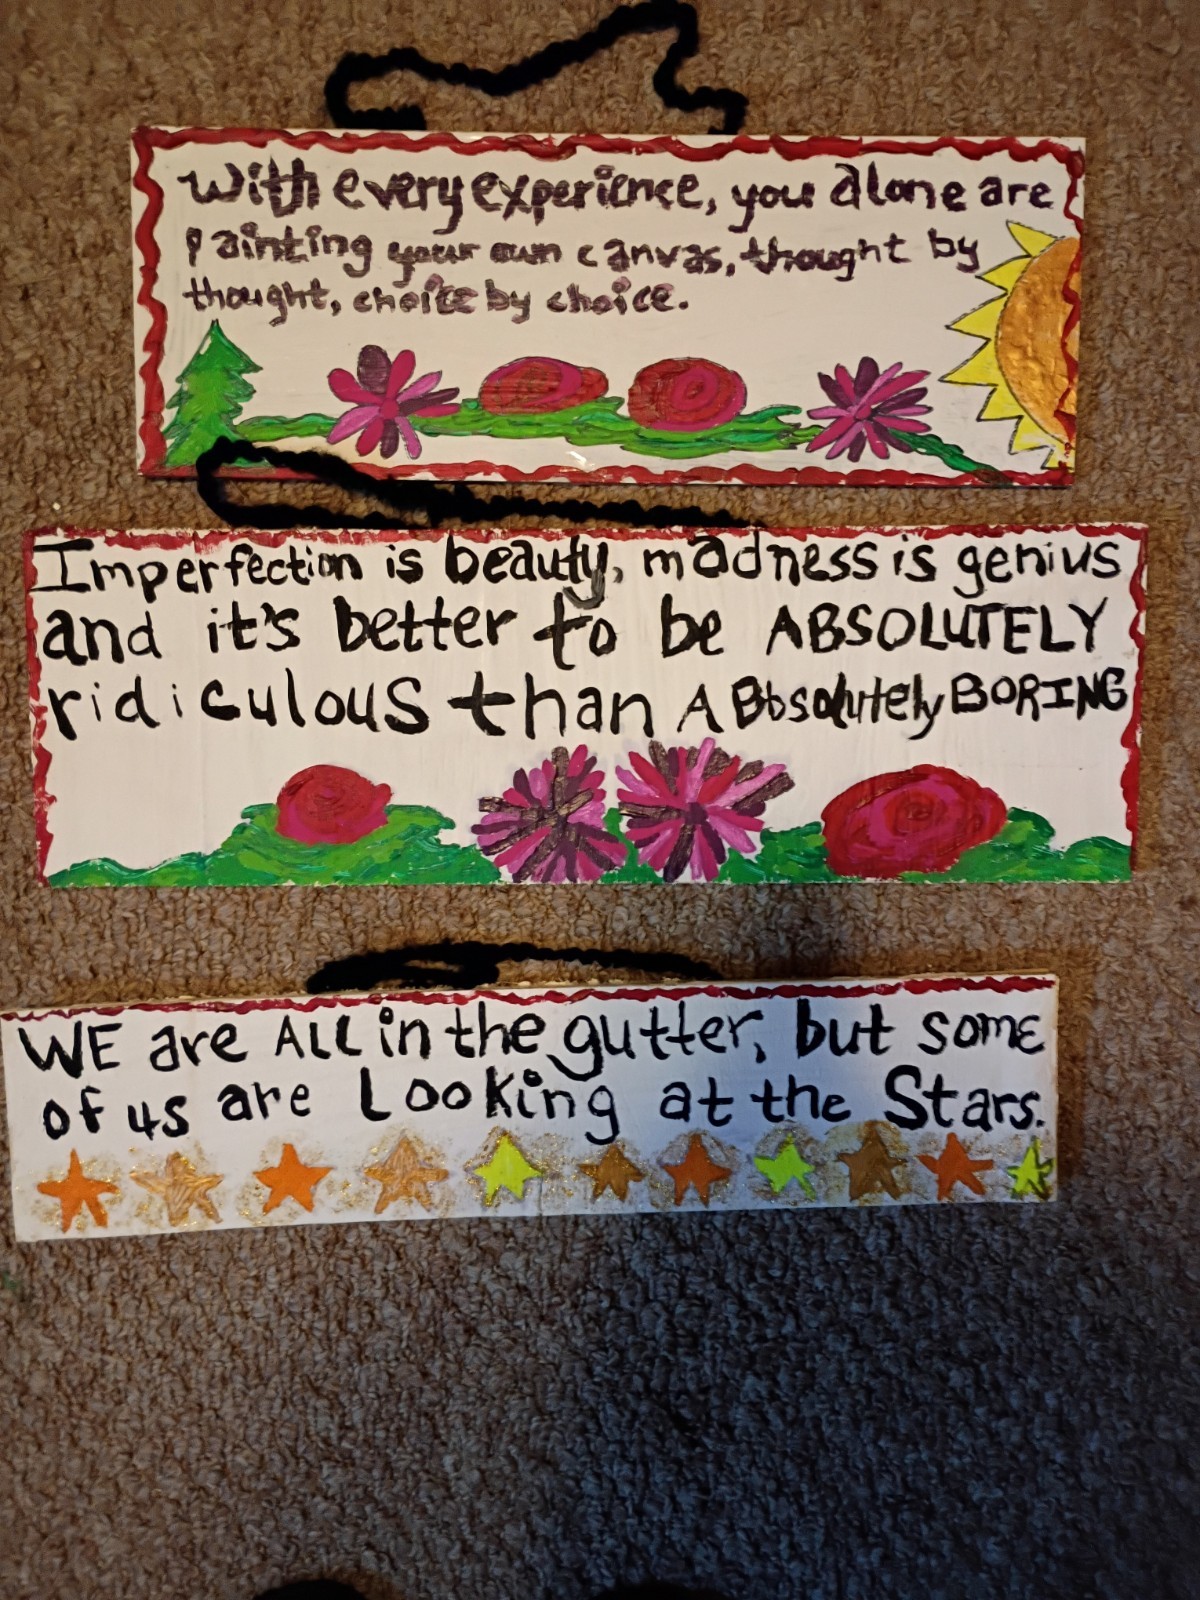 With every experience, you alone are
painting your own canvas, thought by
thought, choice by choice.
Imperfection is beauty, madness is genius
and it's better to be ABSOLUTELY
ridiculous than ABbsolutely BORING
WE are ALL in the gutter, but some
of us are Looking at the Stars.